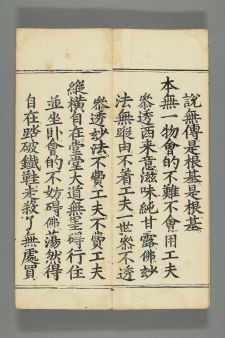 說無傳是根基是根基
本無一物會的不難不會用工夫
叅透西来意滋味純甘露佛玅
法無蹤由不着工夫一世叅不透
叅透玅法不費工夫不費工夫
縱橫自在堂堂大道無罣碍行住
並坐卧會的不妨碍佛蕩然得
自在踏破鐵鞋走殺了無處買